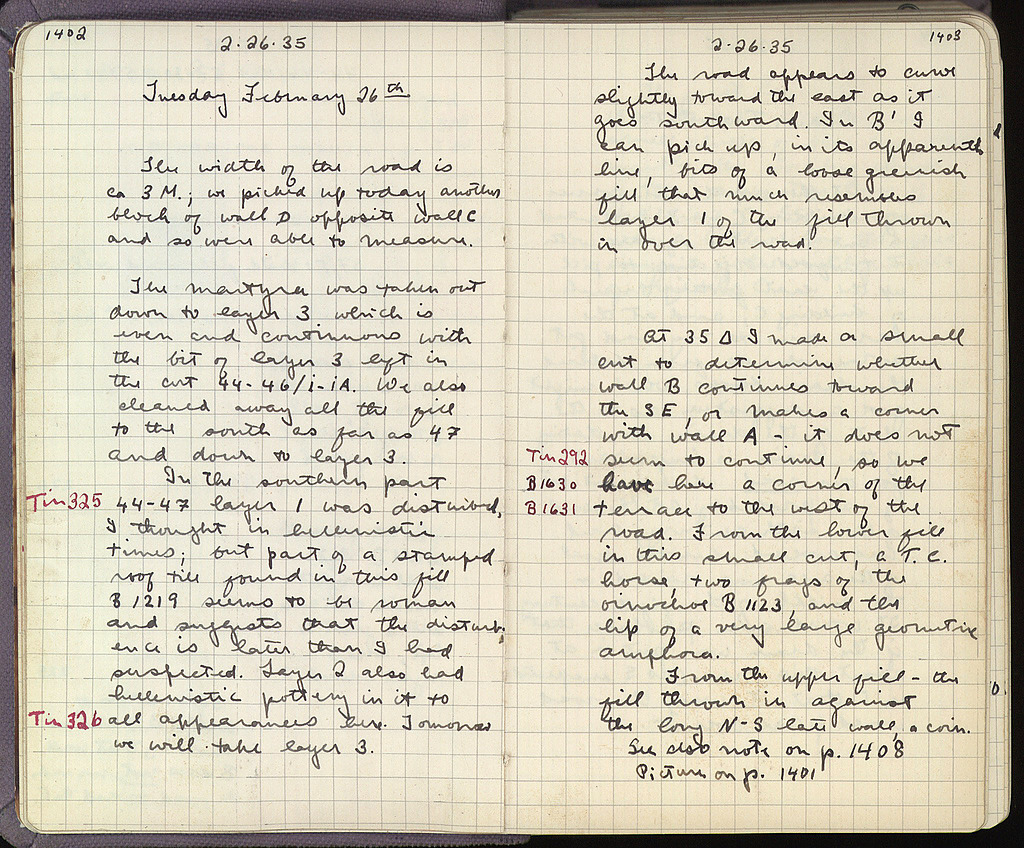 1402
2·26·35
Tuesday February 26th
The width of the road is
ca 3 M.; we picked up today another
block of wall D opposite wall C
and so were able to measure.
The martyra was taken out
down to layer 3 which is
even and continuous with
the bit of layer 3 left in
the cut 44-46/i-iA. We also
cleaned away all the fill
to the south as far as 47
and down to layer 3.
In the southern part
Tin 325 44-47 layer 1 was disturbed,
I thought in hellenistic
times; but part of a stamped
roof tile found in this fill
B 1219 seems to be roman
and suggests that the disturb-
ence is later than I had
suspected. Layer 2 also had
hellenistic pottery in it to
Tin 326 all appearances here. Tomorrow
we will take layer 3.
1403
2·26·35
The road appears to curve
slightly toward the east as it
goes southward. In B' I
can pick up, in its apparent
line, bits of a loose greenish
fill that much resembles
layer 1 of the fill thrown
in over the road.
At 35 Δ I made a small
cut to determine whether
wall B continues toward
the SE, or makes a corner
with wall A - it does not
Tin 292 seem to continue, so we
B 1630 have here a corner of the
B 1631 terrace to the west of the
road. From the lower fill
in this small cut, a T.C.
horse, two frags of the
oinochoe B 1123, and the
lip of a very large geometric
amphora.
From the upper fill - the
fill thrown in against
the long N-S late wall, a coin.
See also note on p. 1408
Picture on p. 1401